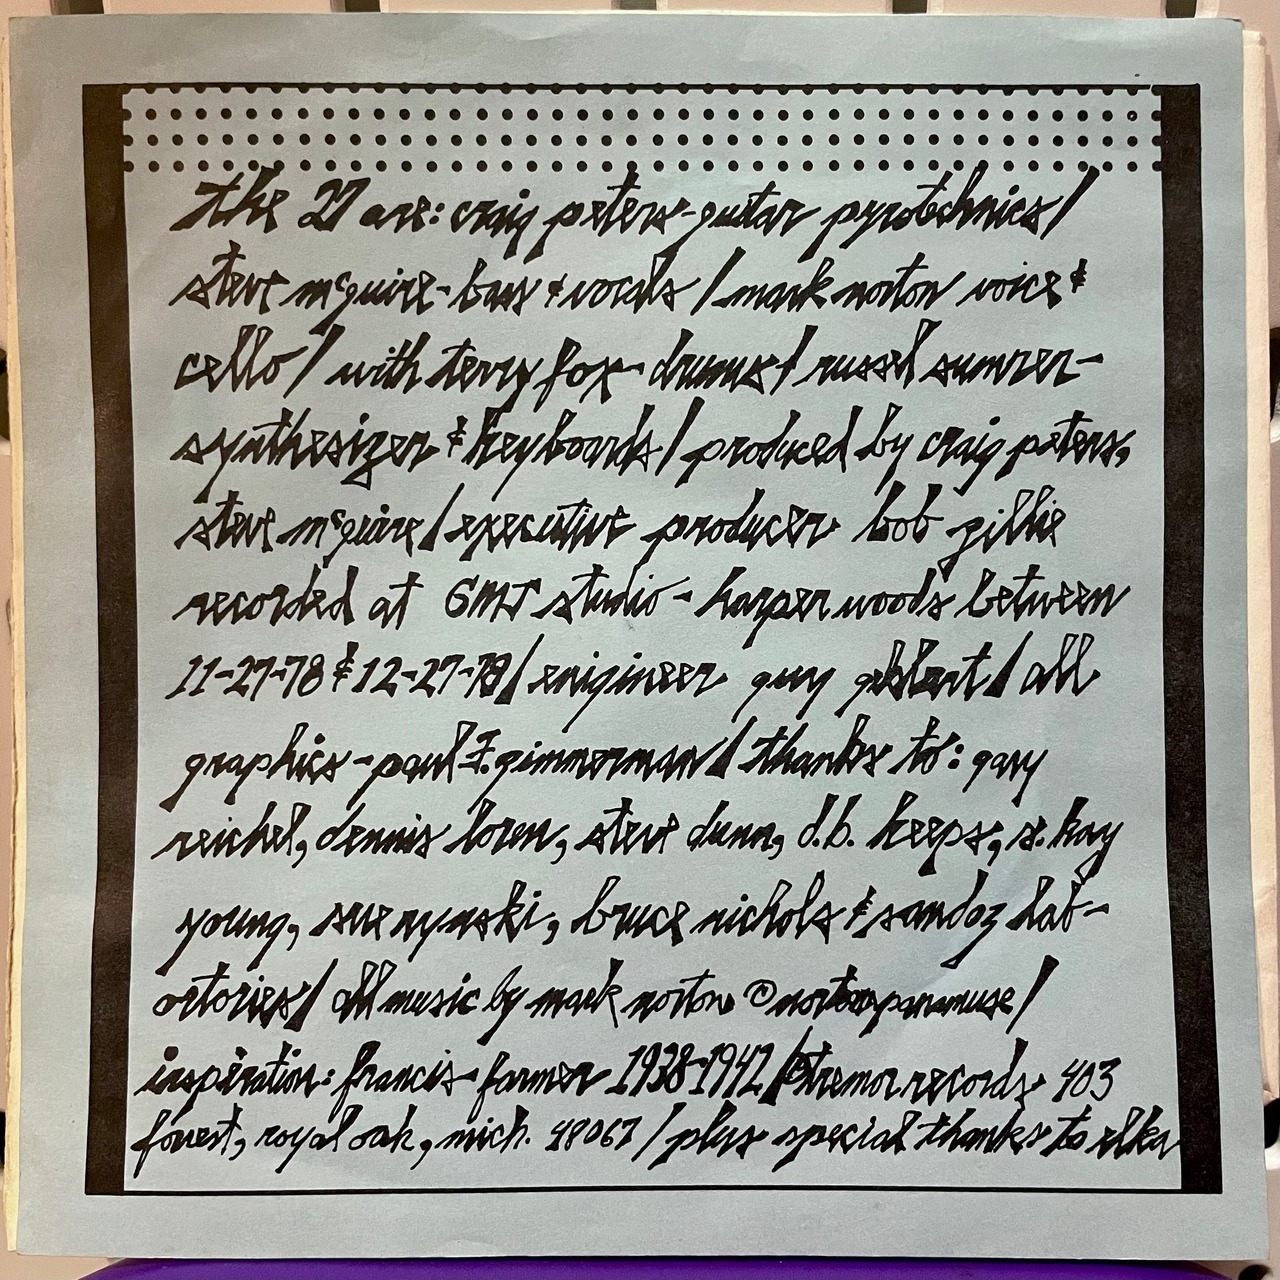 the 27 are: craig peters-guitar pyrotechnics/
steve mcguire-bass & vocals / mark norton voice &
cello / with terry fox-drums / russel sumner-
synthesizer & keyboards / produced by craig peters,
steve mcguire / executive producer bob
recorded at GMS studio-harper woods between
11-27-78 & 12-27-78 / enigineer guy / all
graphics-paul F. zimmerman / thanks to: gary
reichel, dennis loren, steve dunn, d.b. keeps, s. kay
young, sue rynski, bruce nichols & sandoz lab-
ortories / all music by mark norton ©
inspiration: francis farmer 1938-1942 / tremor records 403
forest, royal oak, mich. 48067 / plus special thanks to elka